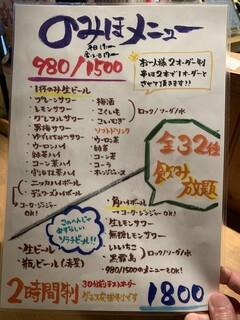 のみほメニュー
980/1500
お一人様2オーダー制
串は2本で1オーダーと
させて頂きます!!
1杯のみ生ビール
プレーンサワー
レモンサワー
グレフルサワー
男梅サワー
ウーロンハイ
緑茶ハイ
コーン茶ハイ
ニッカハイボール
デュワーズハイボール
コーク・ジンジャー
OK!
梅酒
こくいも
こいむぎ
ロック/ソーダ/水
ソフトドリンク
ウーロン茶
緑茶
コーン茶
コーラ
全32種
飲み放題
このへんじゃ
めずらしい
ソラチビール!!
生ビール
瓶ビール(赤星)
角ハイボール
コーク・ジンジャーOK!
生レモンサワー
無糖レモンサワー
いいちこ
黒霧島
ロック/ソーダ/水
980/1500のメニューもOK!
2時間制
30分前ラストオーダー
グラス交換制です
1800